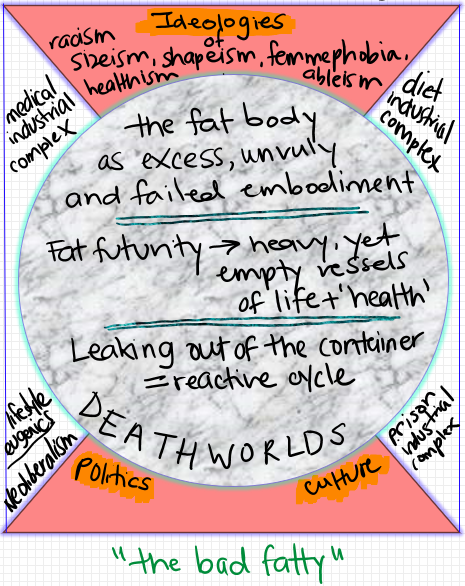 Ideologies
of
racism
sizeism, shapeism, femmephobia,
healthism
ableism
medical
industrial
complex
diet
industrial
complex
the fat body
as excess, unruly
and failed embodiment
Fat futurity → heavy, yet
empty vessels
of life + 'health'
Leaking out of the container
= reactive cycle
DEATHWORLDS
lifestyle
eugenics
Neoliberalism
prison
industrial
complex
Politics
culture
"the bad fatty"